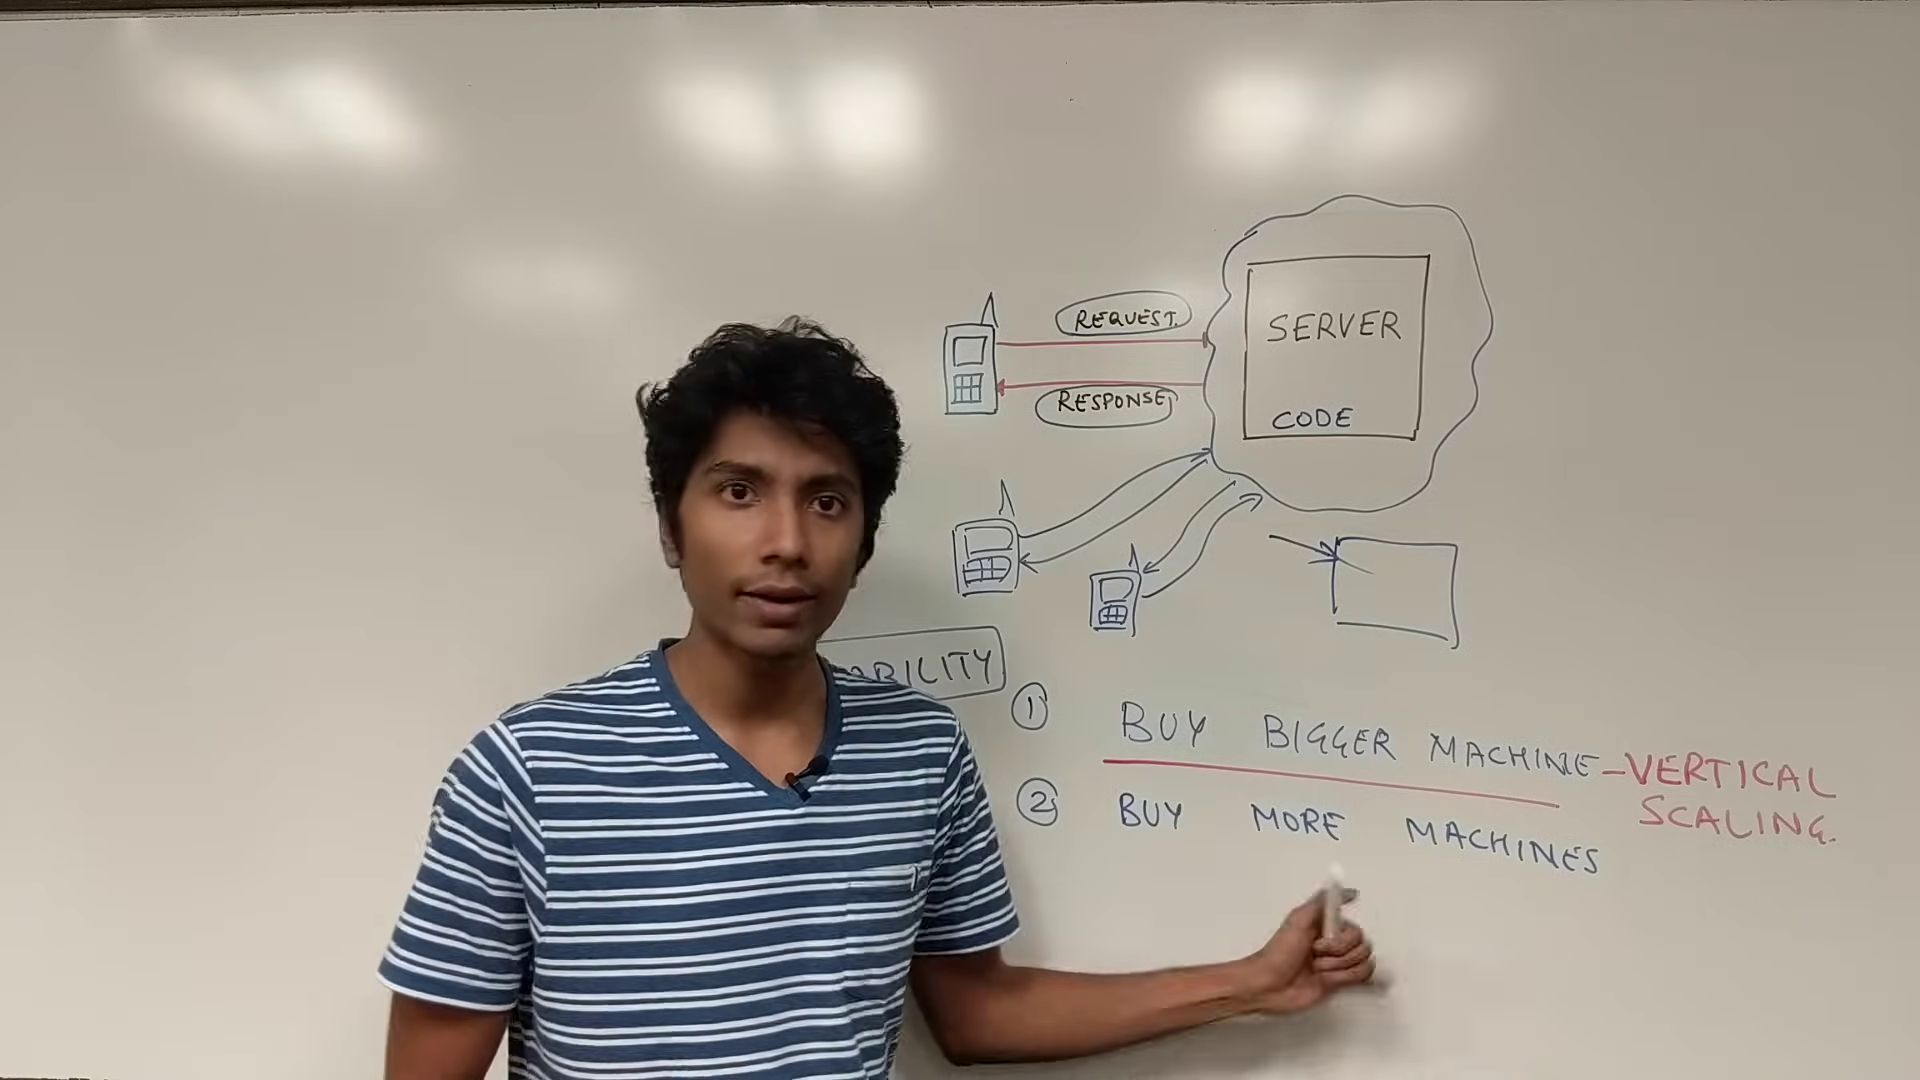 REQUEST.
RESPONSE
SERVER
CODE
① BUY BIGGER MACHINE - VERTICAL
SCALING.
② BUY MORE MACHINES